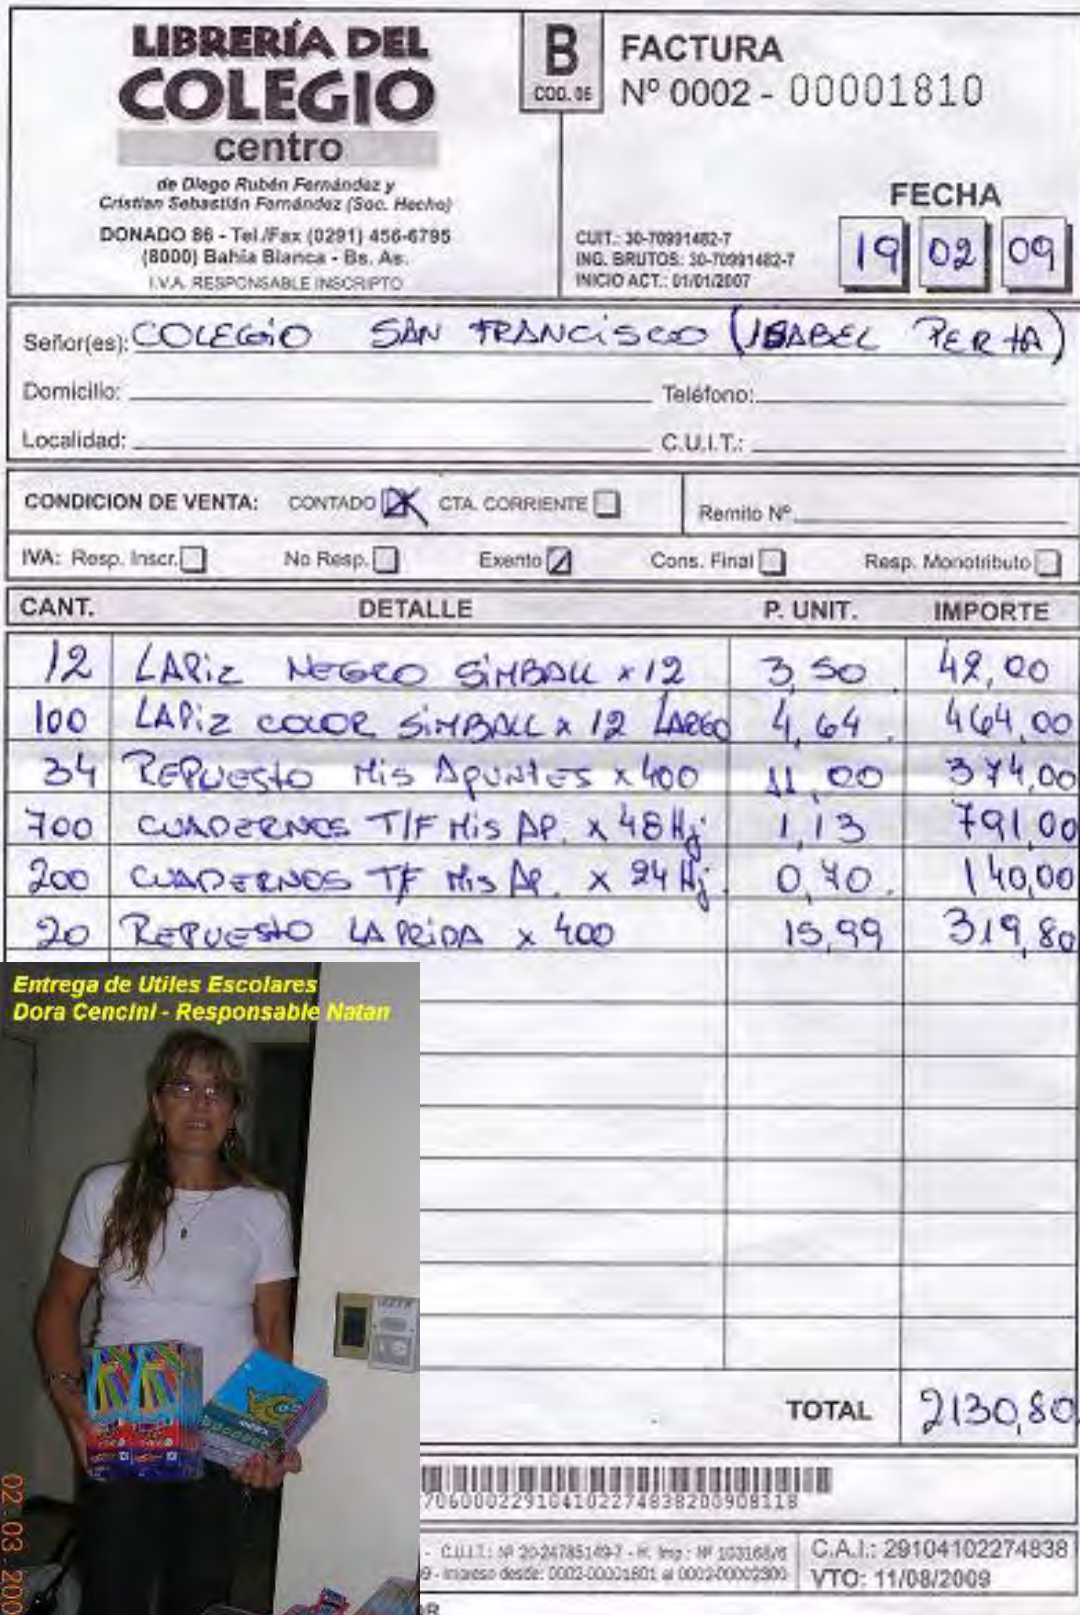 LIBRERÍA DEL
COLEGIO
centro
de Diego Rubén Fernández y
Cristian Sebastián Fernández (Soc. Hecho)
DONADO 86 - Tel./Fax (0291) 456-6795
(8000) Bahía Blanca - Bs. As.
I.V.A. RESPONSABLE INSCRIPTO
B
COD. 06
FACTURA
Nº 0002 - 00001810
FECHA
19 02 09
CUIT.: 30-70991482-7
ING. BRUTOS: 30-70991482-7
INICIO ACT.: 01/01/2007
Señor(es): COLEGIO SAN FRANCISCO (ISABEL PERTA)
Domicilio: Teléfono:
Localidad: C.U.I.T.:
CONDICION DE VENTA: CONTADO CTA. CORRIENTE Remito Nº
IVA: Resp. Inscr. No Resp. Exento Cons. Final Resp. Monotributo
CANT. DETALLE P. UNIT. IMPORTE
12 LAPIZ NEGRO SIMBALL x 12 3,50 42,00
100 LAPIZ COLOR SIMBALL x 12 LARGO 4,64 464,00
34 REPUESTO Mis APUNTES x 400 11,00 374,00
700 CUADERNOS T/F Mis AP. x 48 Hj. 1,13 791,00
200 CUADERNOS T/F Mis AP. x 24 Hj. 0,70 140,00
20 REPUESTO LAPRIDA x 400 15,99 319,80
Entrega de Utiles Escolares
Dora Cencini - Responsable Natan
TOTAL 2130,80
02.03.200
C.U.I.T.: Nº 20-24785149-7 - H. Imp.: Nº 103168/6
Impreso desde: 0002-00001801 al 0002-00002300
C.A.I.: 29104102274838
VTO: 11/08/2009